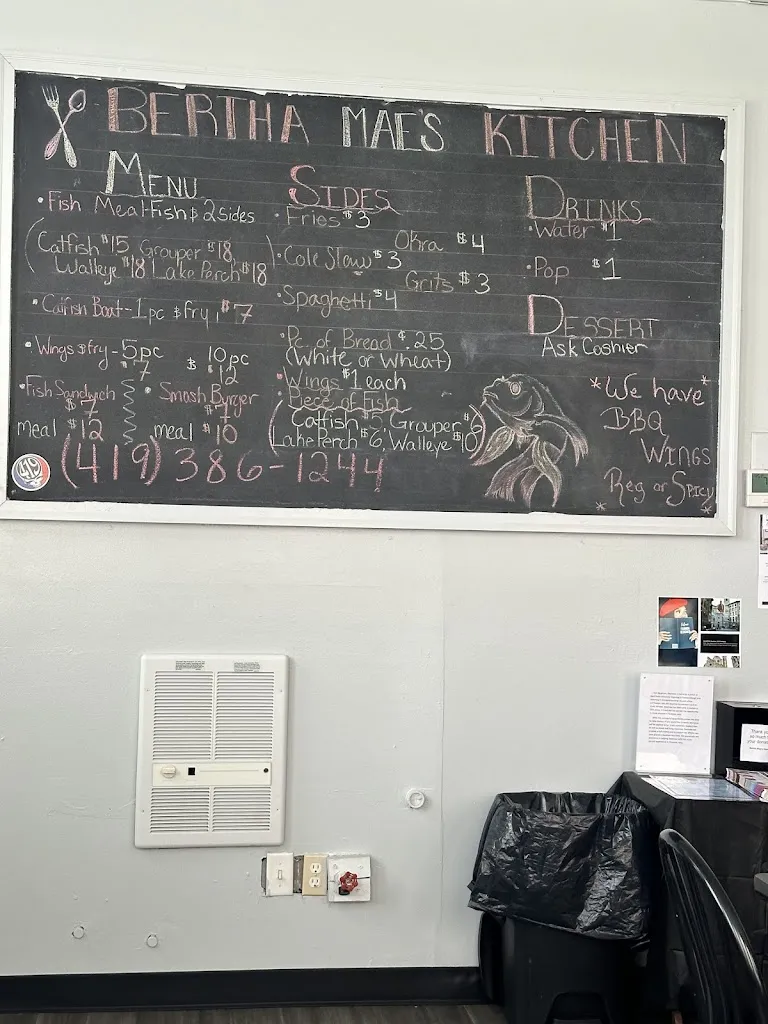 BERTHA MAE'S KITCHEN
MENU
• Fish Meal-Fish & 2 sides
(Catfish $15, Grouper $18,
Walleye $18 Lake Perch $18)
• Catfish Boat-1pc & fry, $7
• Wings & fry - 5pc $7 10pc $12
• Fish Sandwich $7
meal $12
• Smash Burger $7
meal $10
(419) 386-1244
SIDES
• Fries $3
Okra $4
• Cole Slaw $3
Grits $3
• Spaghetti $4
• Pc. of Bread ¢.25
(White or Wheat)
• Wings $1 each
• Piece of Fish
(Catfish $5, Grouper $6
Lake Perch $6, Walleye $10)
DRINKS
• Water $1
• Pop $1
DESSERT
Ask Cashier
*We have*
BBQ
WINGS
* Reg or Spicy *
419
Thank you
so much
your dona